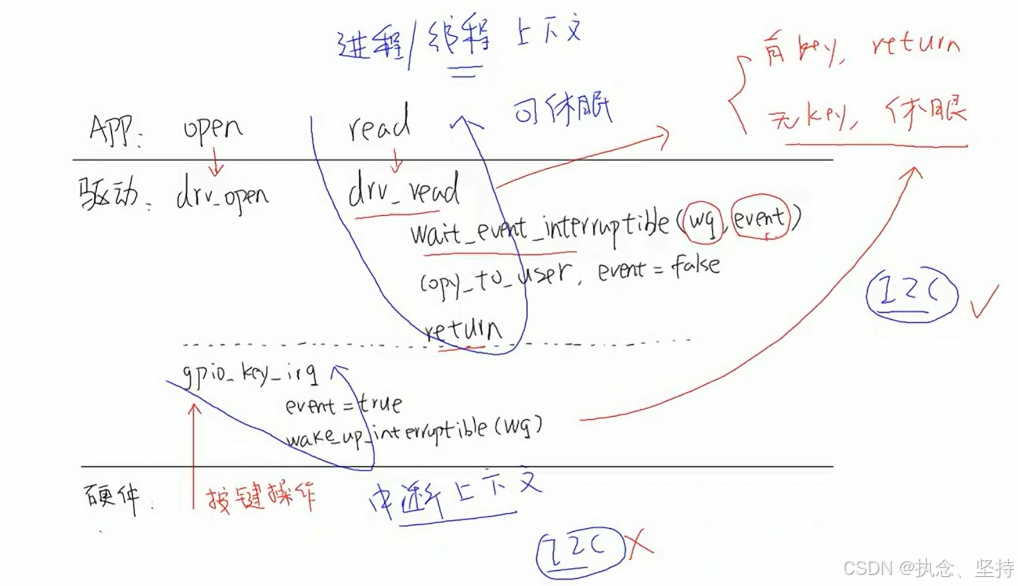 进程/线程 上下文
有key, return
无key, 休眠
可休眠
APP: open read
驱动: drv_open drv_read
wait_event_interruptible(wq, event)
copy_to_user, event = false
return
I2C ✓
gpio_key_irq
event = true
wake_up_interruptible(wq)
硬件: 按键操作 中断上下文
I2C ×
CSDN @执念、坚持